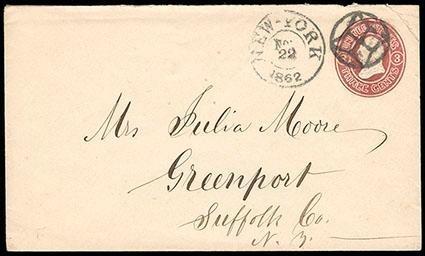 NEW-YORK
NOV
22
1862
THREE CENTS
3
Mrs Julia Moore
Greenport
Suffolk Co.
N. Y.